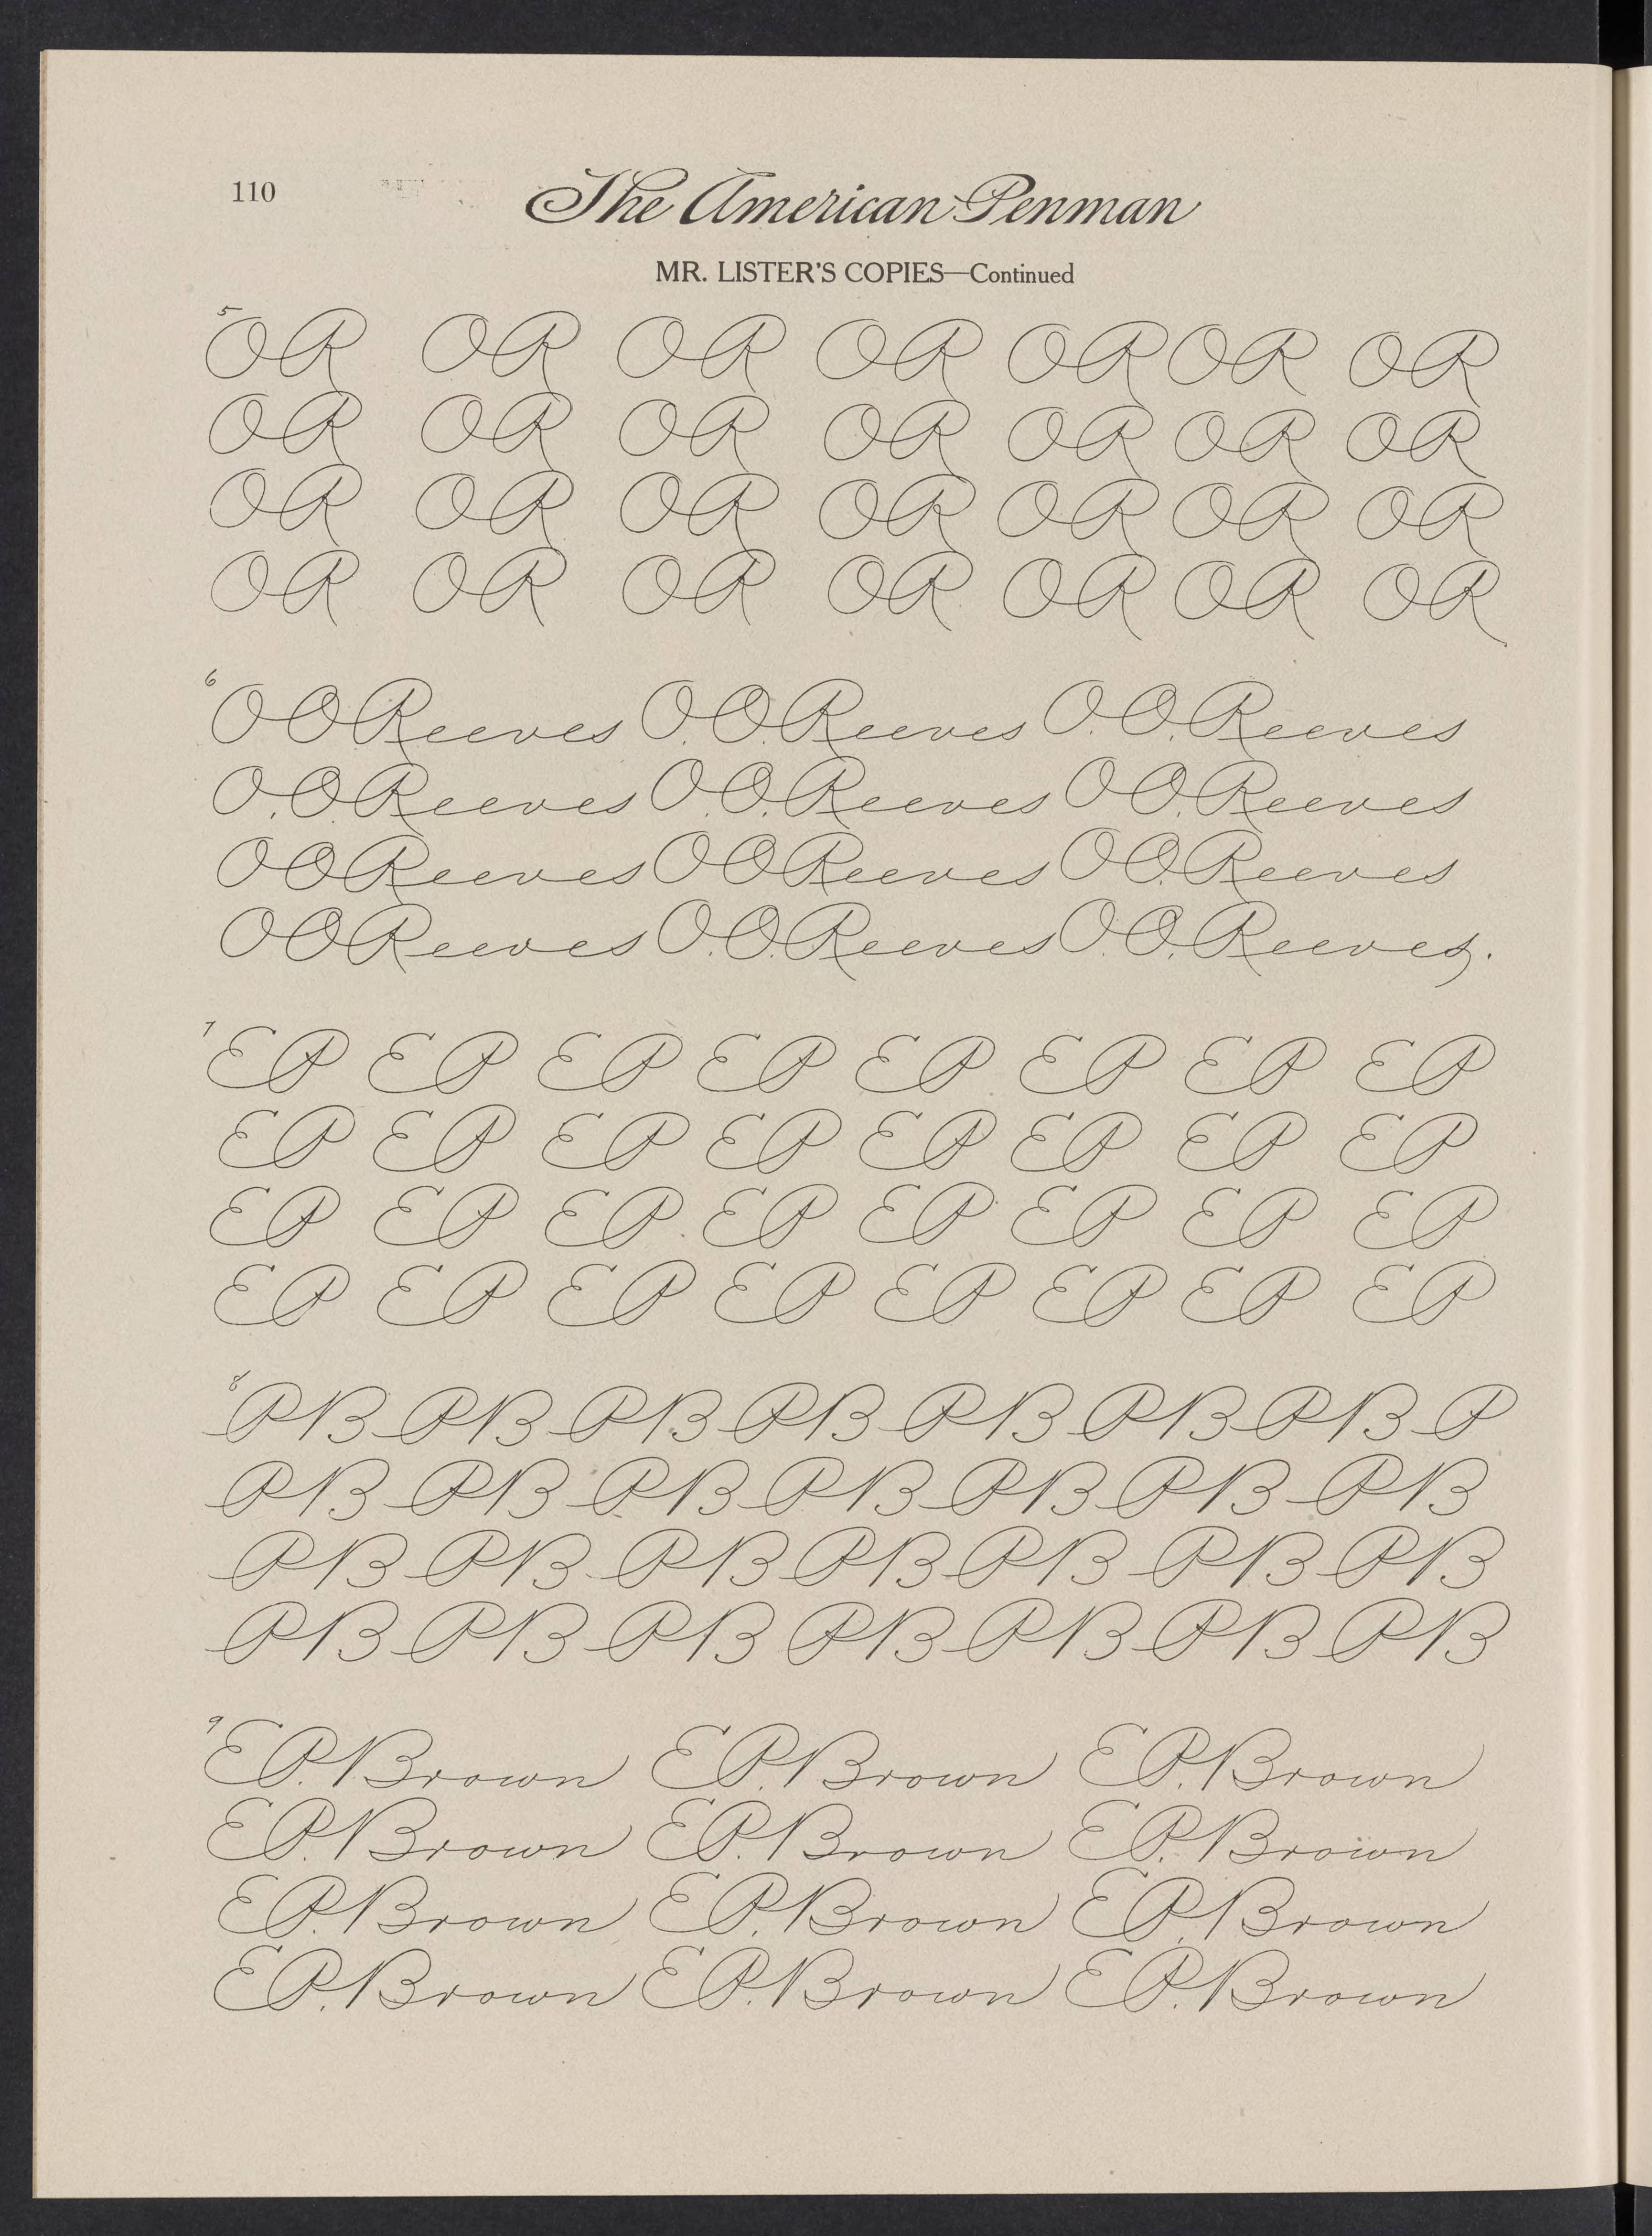 110
The American Penman
MR. LISTER'S COPIES—Continued
5
OR OR OR OR OR OR OR
OR OR OR OR OR OR OR
OR OR OR OR OR OR OR
OR OR OR OR OR OR OR
6
O O Reeves O. O. Reeves O. O. Reeves
O. O. Reeves O. O. Reeves O O. Reeves
O O Reeves O O Reeves O O. Reeves
O O Reeves O. O. Reeves O. O. Reeves.
7
EP EP EP EP EP EP EP EP
EP EP EP EP EP EP EP EP
EP EP EP EP EP EP EP EP
EP EP EP EP EP EP EP EP
8
PB PB PB PB PB PB PB P
PB PB PB PB PB PB PB
PB PB PB PB PB PB PB
PB PB PB PB PB PB PB
9
E P. Brown E P. Brown E P. Brown
E P. Brown E P. Brown E P. Brown
E P. Brown E P. Brown E P. Brown
E P. Brown E P. Brown E P. Brown